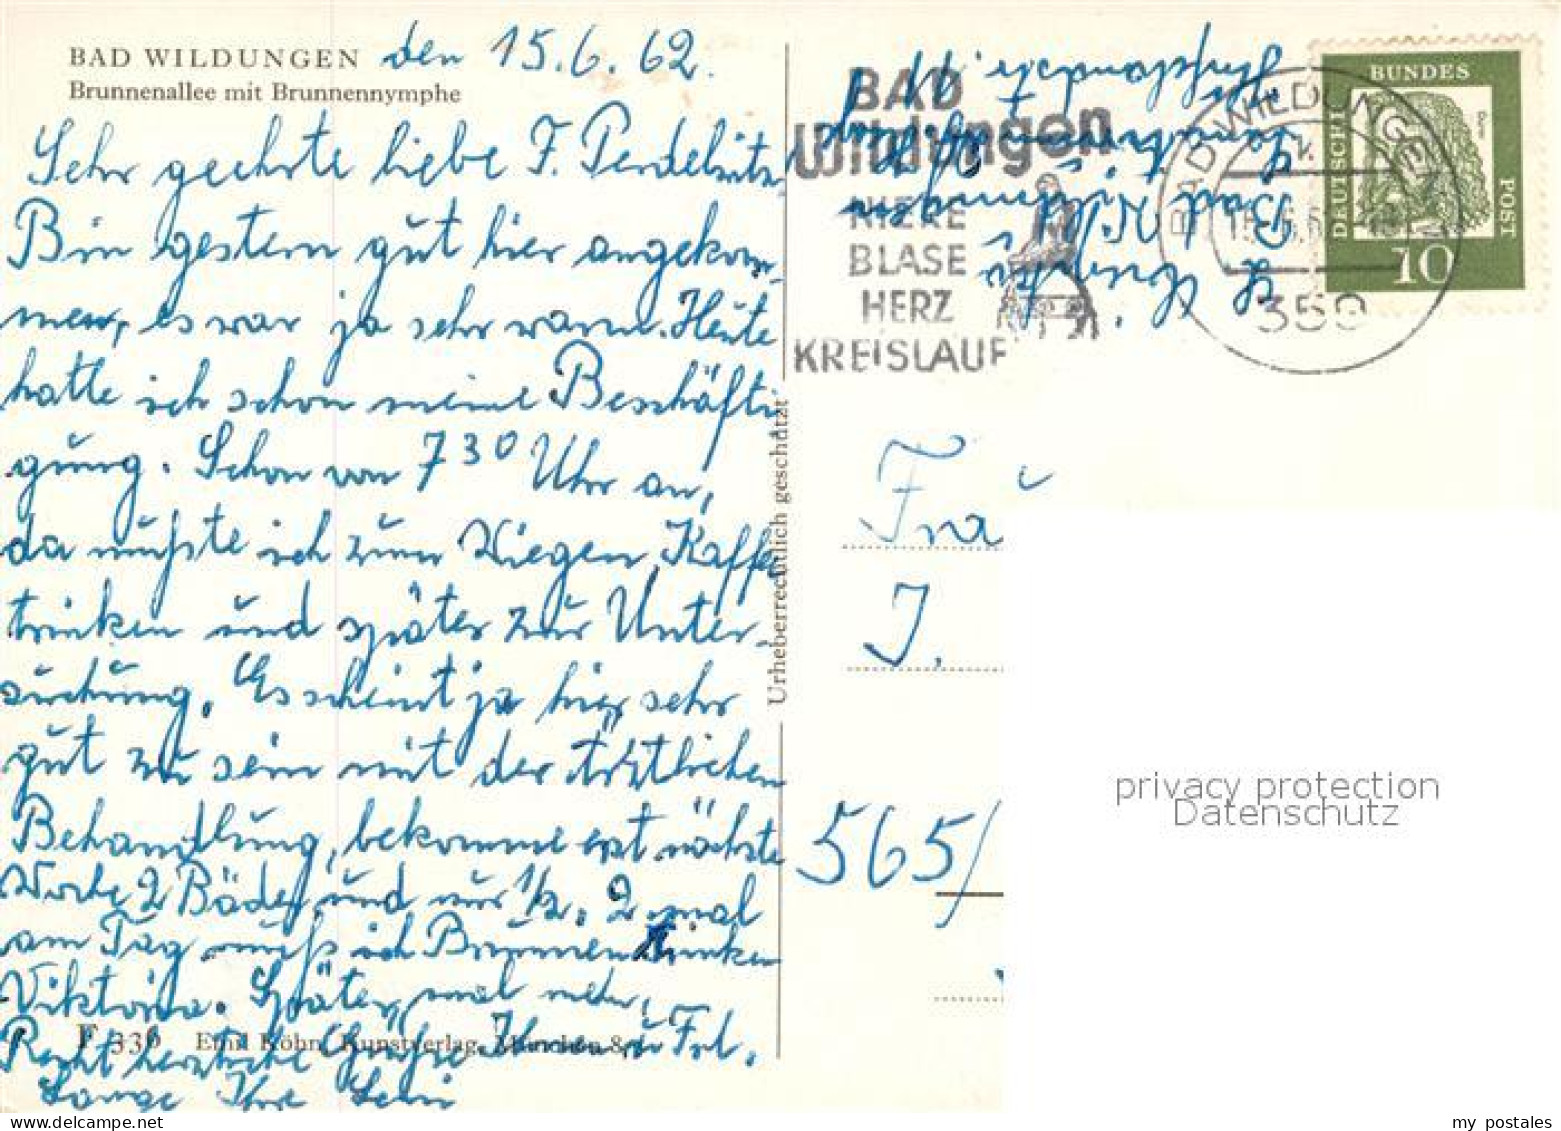 BAD WILDUNGEN den 15.6.62.
Brunnenallee mit Brunnennymphe
Sehr geehrte liebe F.
Bin gestern gut hier angekom-
men, es war ja sehr warm. Heute
hatte ich schon meine Beschäfti
gung. Schon von 7 30 Uhr an,
da mußte ich zum Wiegen, Kaffee
trinken und später zur Unter-
suchung. Es scheint ja hier sehr
gut zu sein mit der ärztlichen
Behandlung, bekomme erst nächste
Woche 2 Bäder, und nur 1/2, 2 mal
am Tag muß ich Brunnen trinken
Viktoria. Später mal mehr,
Recht herzliche Grüße Ihnen u. Frl.
Ihre
F 336 Emil Köhn, Kunstverlag, München 8
Urheberrechtlich geschützt
BAD
Wildungen
NIERE
BLASE
HERZ
KREISLAUF
BAD WILDUNGEN
359
DEUTSCHE
BUNDES
POST
10
Bad Wildungen
Frau
J.
565/
privacy protection
Datenschutz
my postales